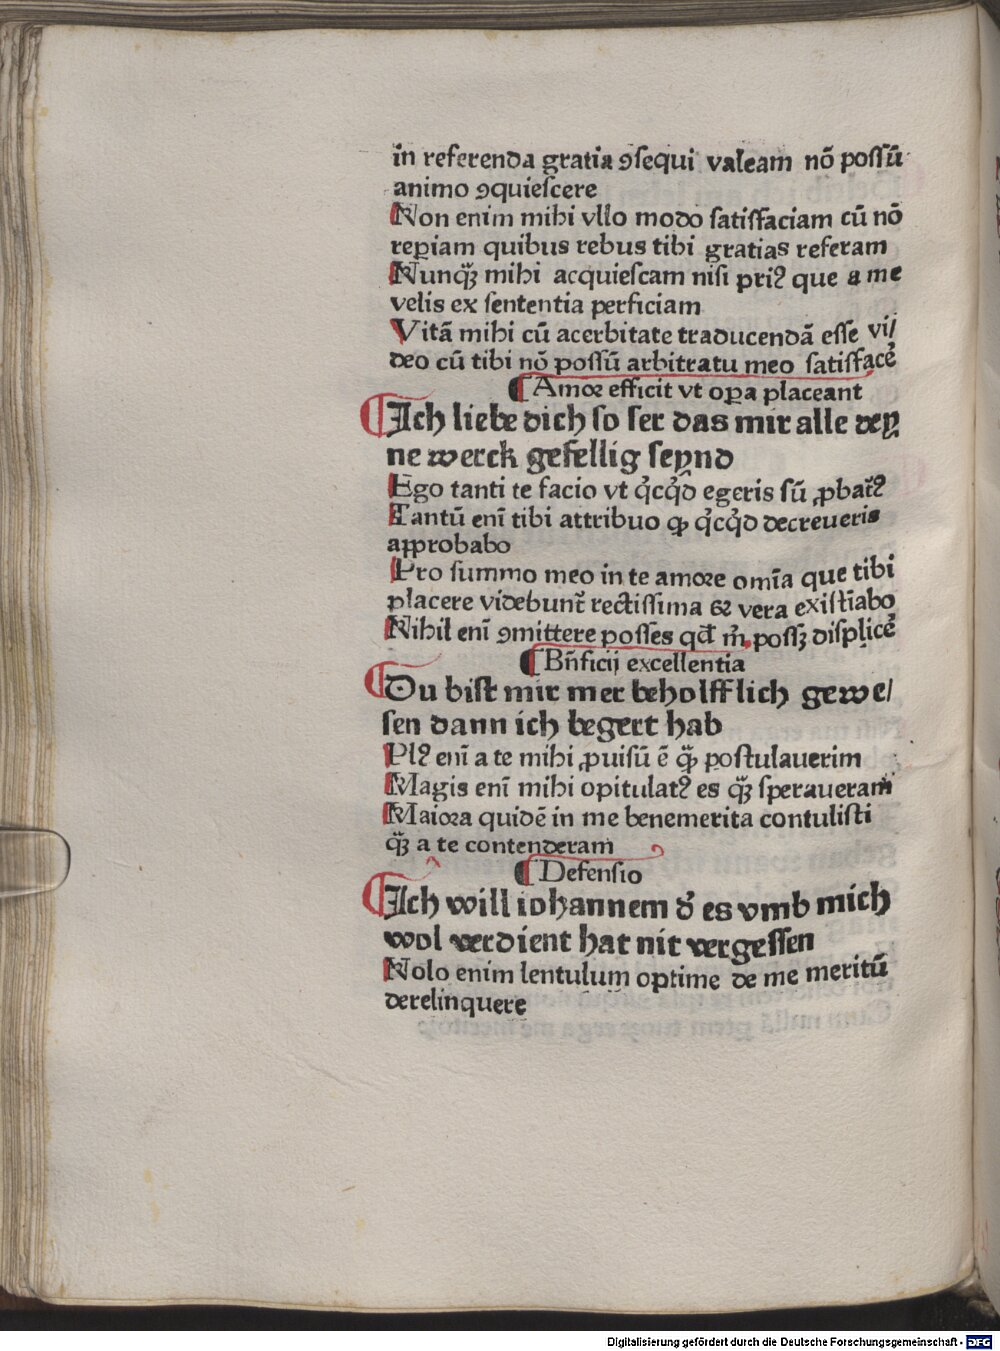 in referenda gratia ꝯsequi valeam nō possū
animo ꝯquiescere
Non enim mihi vllo modo satisfaciam cū nō
reꝑiam quibus rebus tibi gratias referam
Nunqᷓꝫ mihi acquiescam nisi priꝰ que a me
velis ex sententia perficiam
Vitā mihi cū acerbitate traducendā esse vi/
deo cū tibi nō possū arbitratu meo satisfacẻ
¶ Amor efficit vt oꝑa placeant
¶ Ich liebe dich so ser das mir alle dey
ne werck gefellig seynd
Ego tanti te facio vt q̇cq̇d egeris sū ꝓbatꝰ
Tantū enī tibi attribuo ꝙ q̇cq̇d decreueris
approbabo
Pro summo meo in te amore omīa que tibi
placere videbunt᷑ rectissima & vera existīabo
Nihil enī ꝯmittere posses qd̕ m̄ possꝫ displicẻ
¶ Bn̄ficij excellentia
¶ Du bist mir mer beholfflich gewe/
sen dann ich begert hab
Plꝰ enī a te mihi ꝓuisū ē qᷓꝫ postulauerim
Magis enī mihi opitulatꝰ es qᷓꝫ speraueram
Maiora quidē in me benemerita contulisti
qᷓꝫ a te contenderam
¶ Defensio
¶ Ich will iohannem d̕ es vmb mich
wol verdient hat nit vergessen
Nolo enim lentulum optime de me meritū
derelinquere
Digitalisierung gefördert durch die Deutsche Forschungsgemeinschaft - DFG